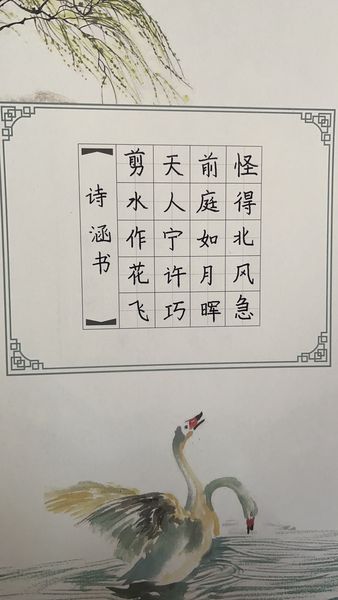 怪得北风急
前庭如月晖
天人宁许巧
剪水作花飞
【诗涵书】